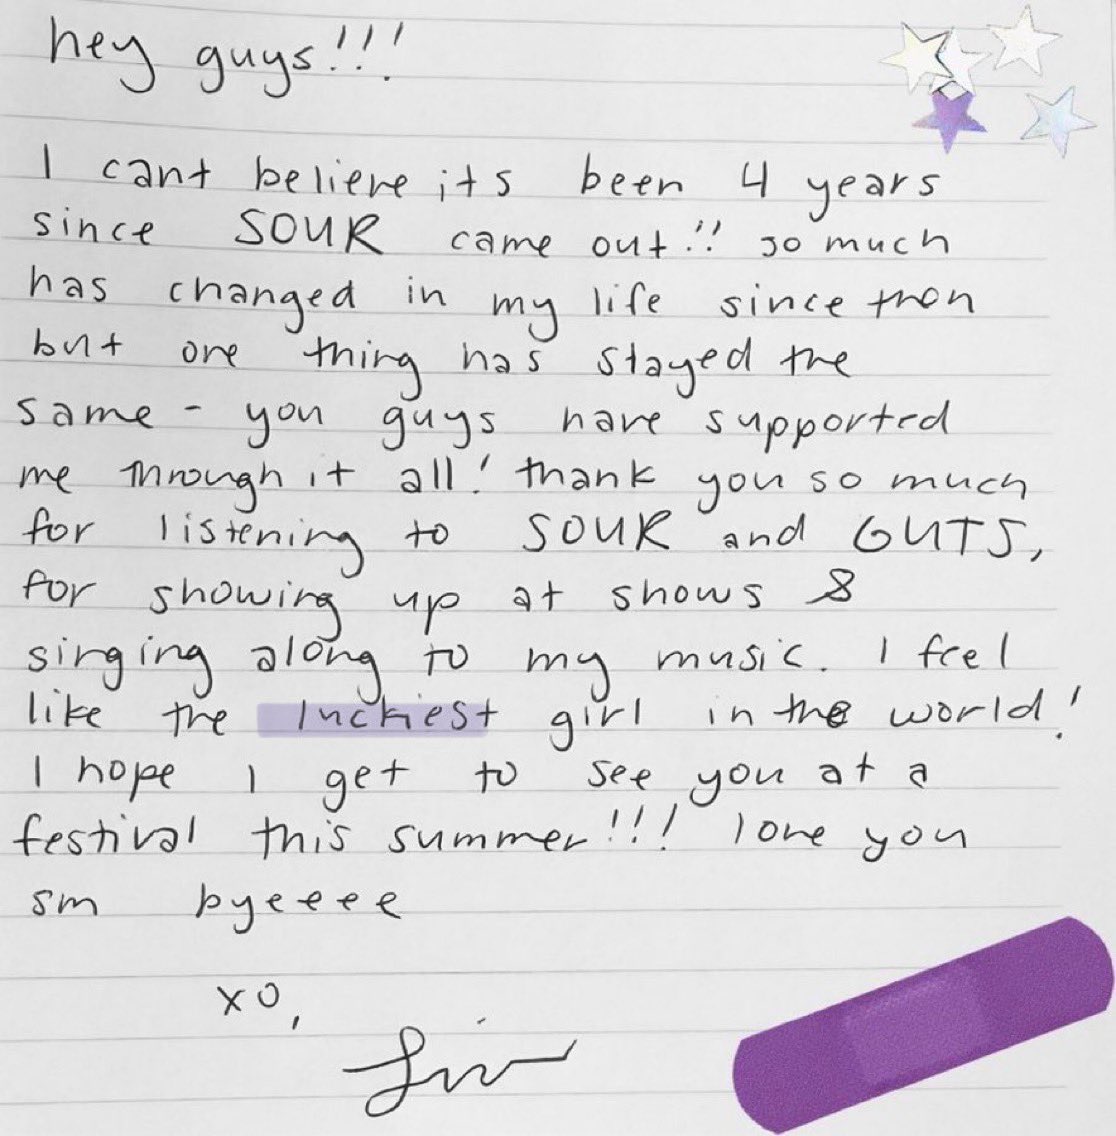 hey guys!!!
I cant believe its been 4 years
since SOUR came out!! so much
has changed in my life since then
but one thing has stayed the
same - you guys have supported
me through it all! thank you so much
for listening to SOUR and GUTS,
for showing up at shows &
singing along to my music. I feel
like the luckiest girl in the world!
I hope I get to see you at a
festival this summer!!! love you
sm byeeeee
xo,
Liv